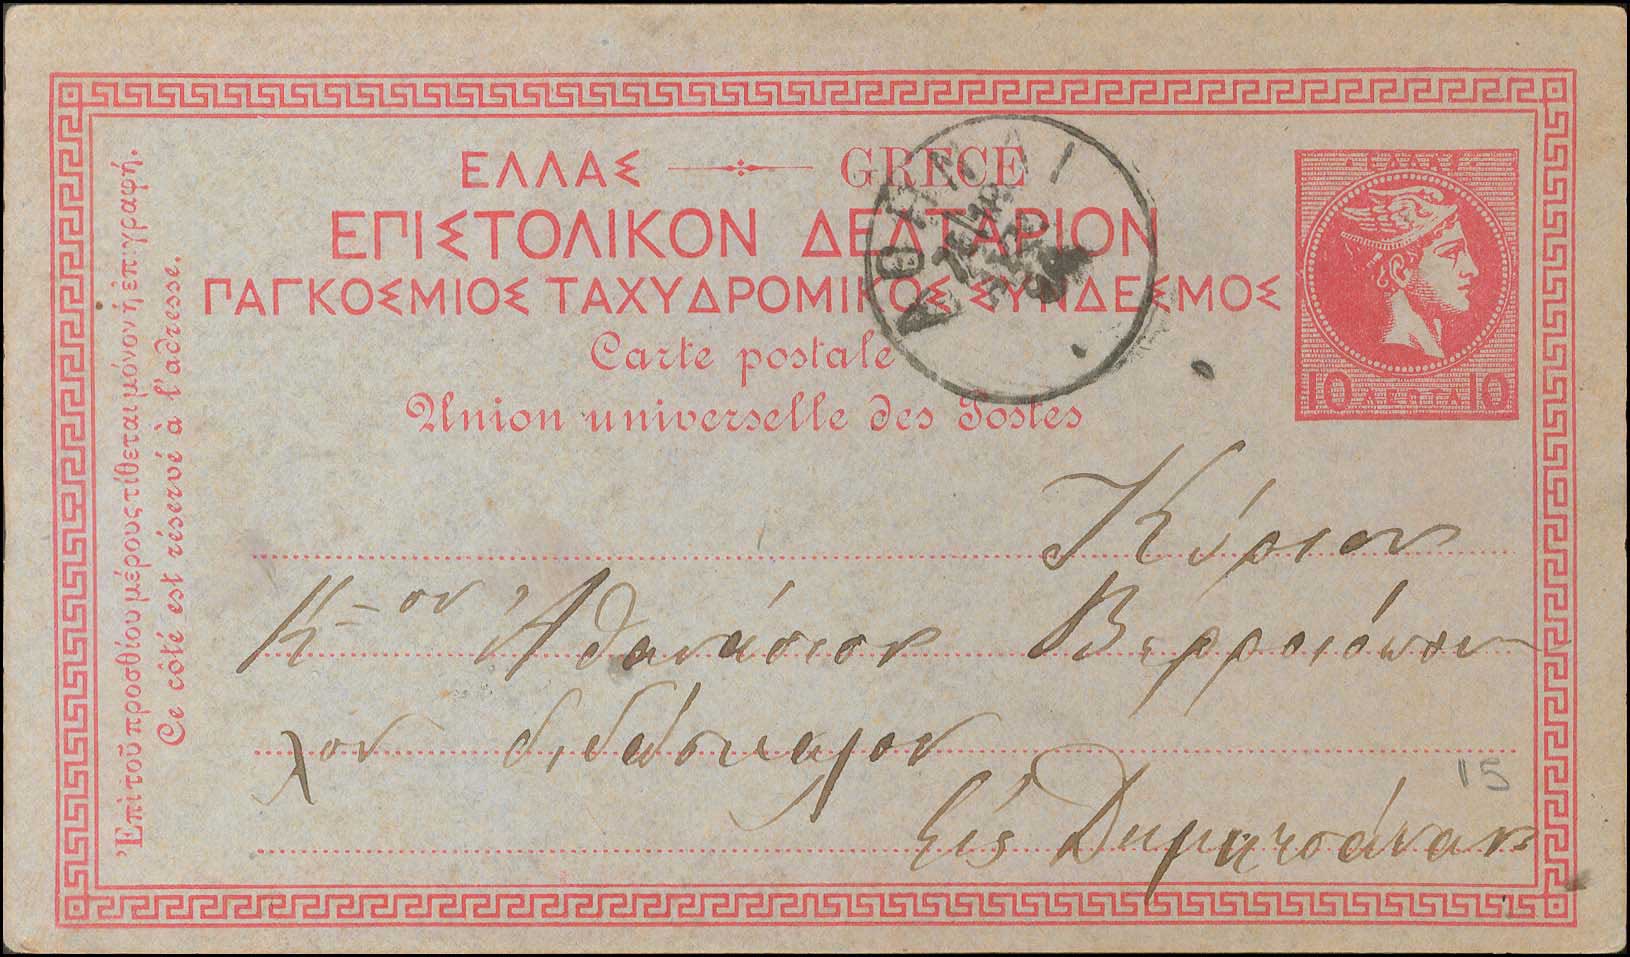 ΕΛΛΑΣ GRECE
ΕΠΙΣΤΟΛΙΚΟΝ ΔΕΛΤΑΡΙΟΝ
ΠΑΓΚΟΣΜΙΟΣ ΤΑΧΥΔΡΟΜΙΚΟΣ ΣΥΝΔΕΣΜΟΣ
Carte postale
Union universelle des Postes
Ἐπὶ τοῦ προσθίου μέρους τίθεται μόνον ἡ ἐπιγραφή.
Ce côté est réservé à l'adresse.
ΑΘΗΝΑΙ
10 ΛΕΠΤΑ 10
Κύριον
Κ-ον Ἀθανάσιον
χον διδάσκαλον
Εἰς Δημητσάναν
15